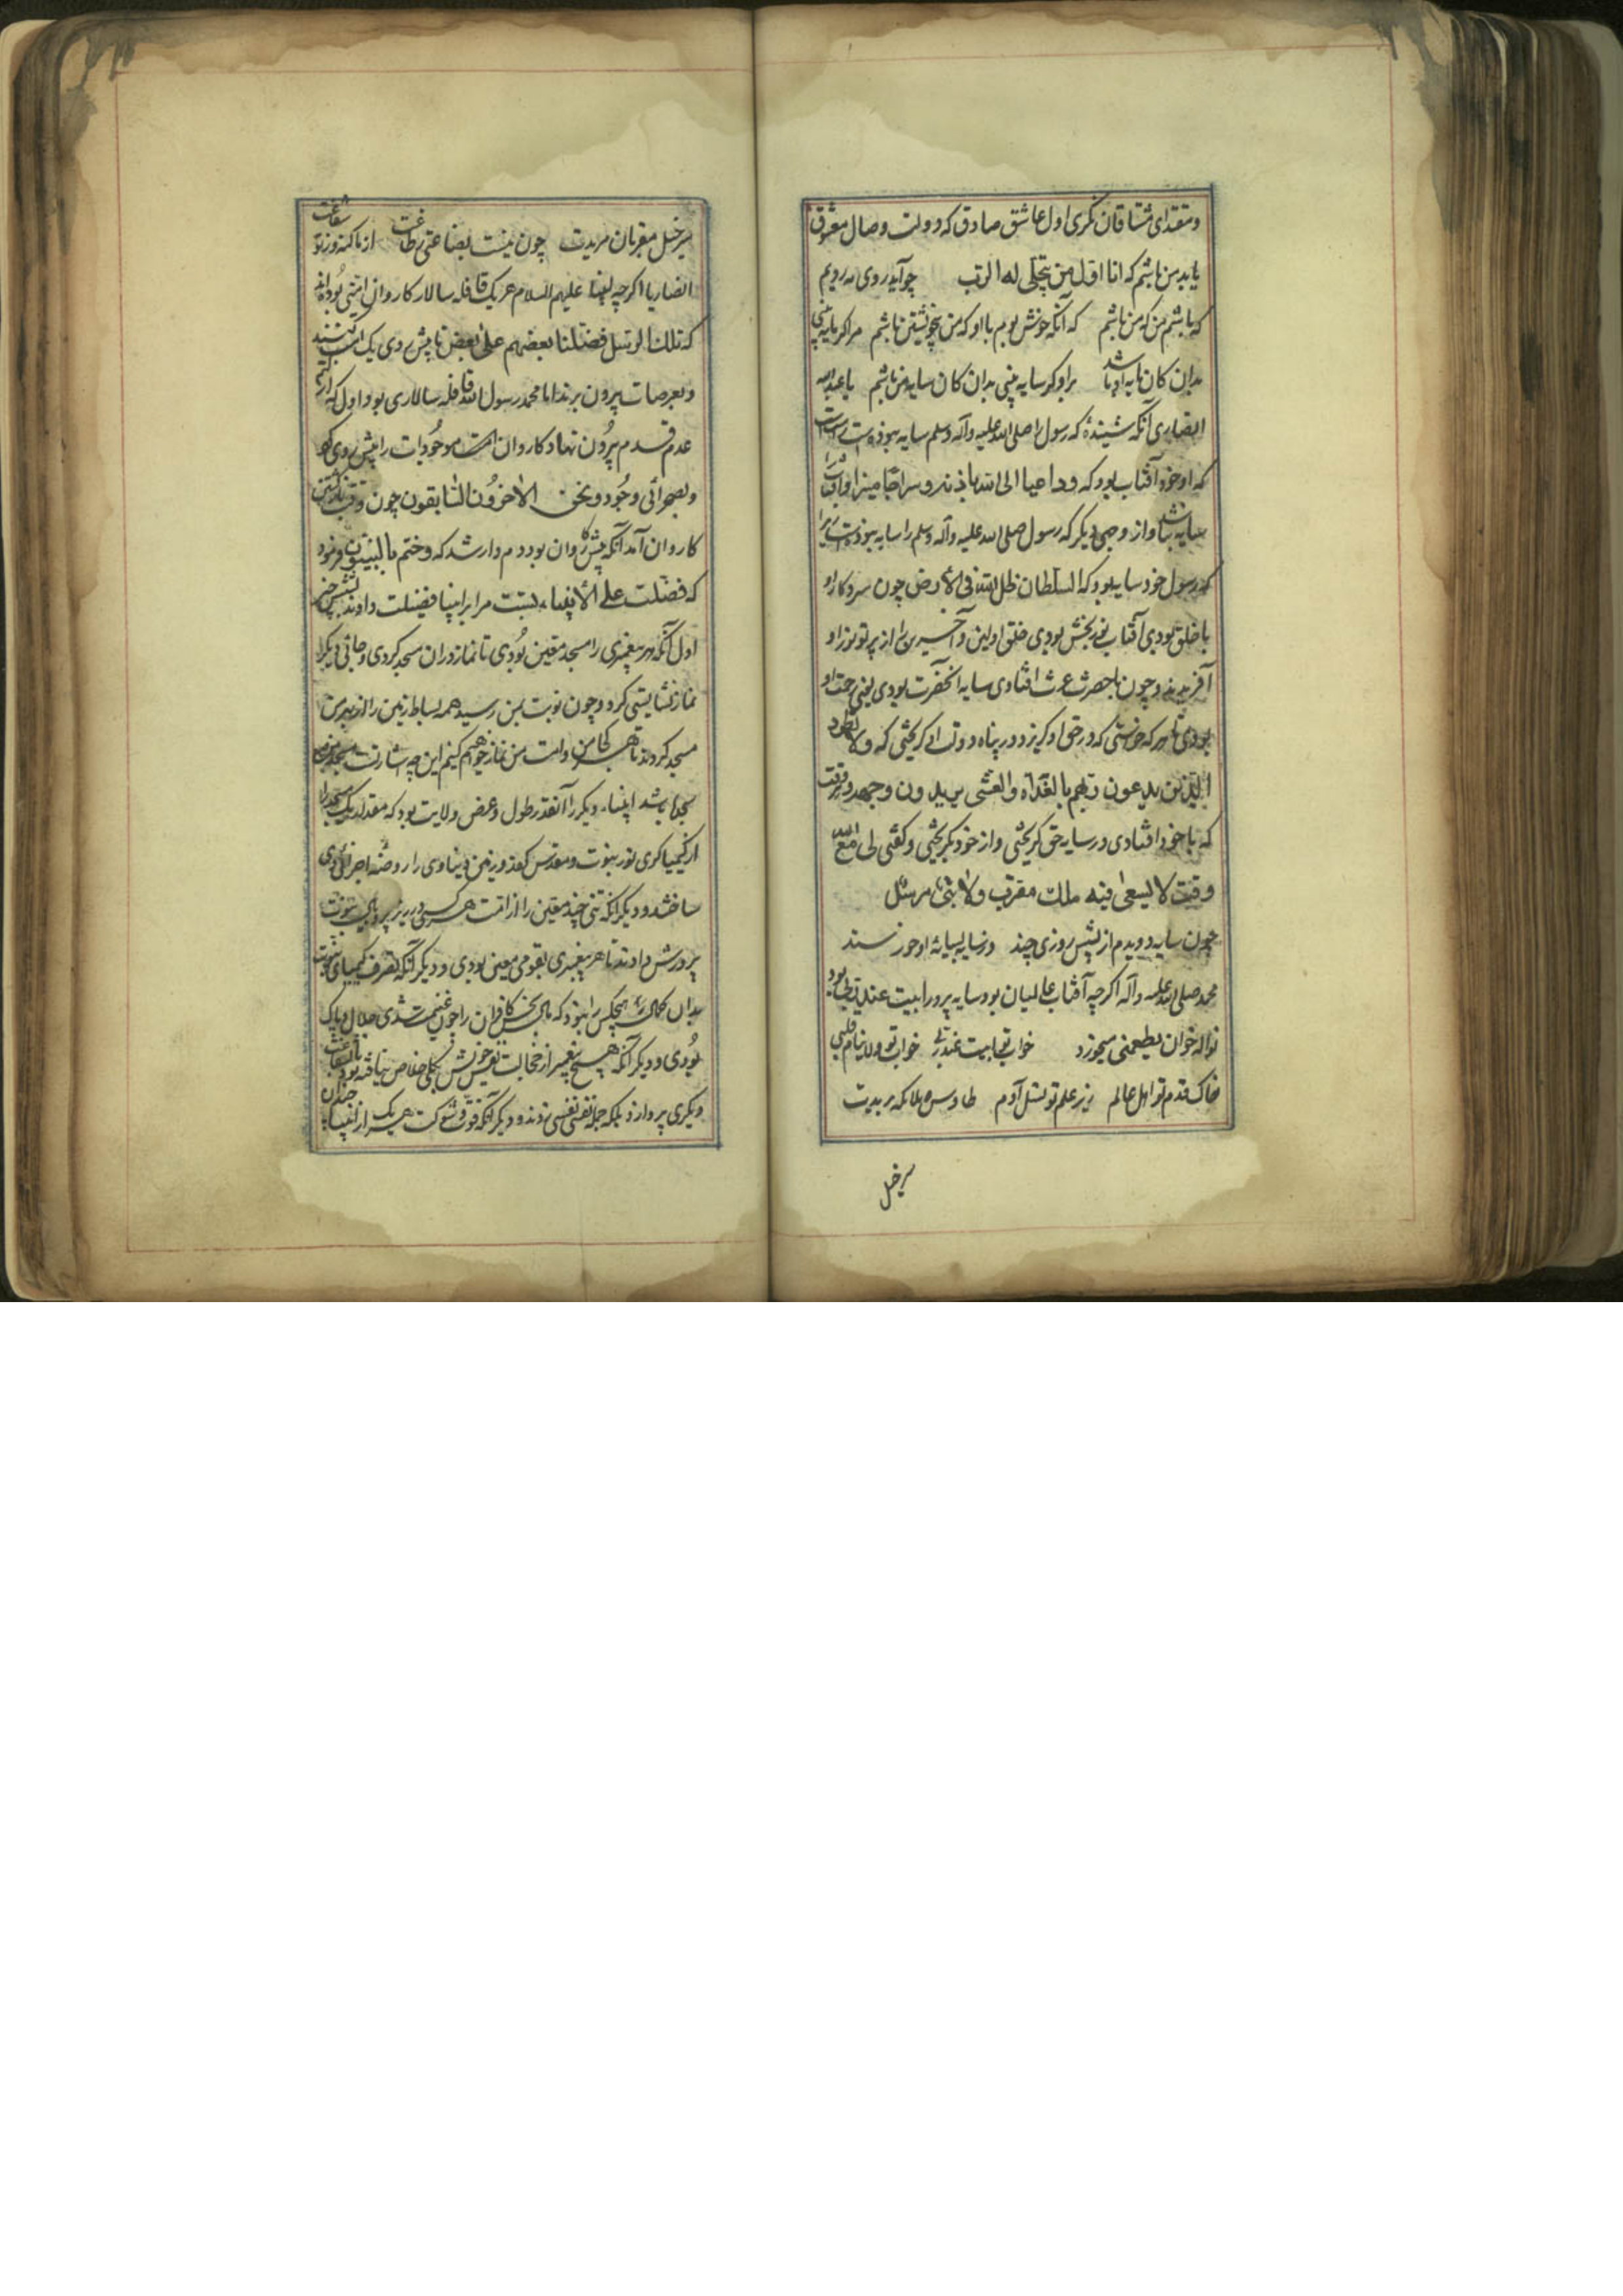 و مقتدای مشتاقان نگری اول عاشق صادق که دولت وصال معشوق
یابد من باشم که انا اول من یتجلی له الرب چو آید روی مه رویم
که باشم من که من باشم که آنکه خوش بوم با او که من بی خویشتن باشم مرا گر مایه بینی
بدان کان مایه او باشد برو گر سایه بینی بدان کان سایه من باشم یا عبدالله
انصاری آنکه شنیدهٔ که رسول را صلی الله علیه و آله وسلم سایه نبوده است راست است
که او خود آفتاب بود که و داعیا الی الله باذنه و سراجا منیرا و آفتاب را
سایه نباشد و از وجهی دیگر که رسول صلی الله علیه و آله وسلم را سایه نبوده است زیرا
که رسول خود سایه بود که السلطان ظل الله فی الأرض چون سر و کار او
با خلق بودی آفتاب نوربخش بودی خلق اولین و آخرین را از پرتو نور او
آفریدند و چون با حضرت عزت افتادی سایه آنحضرت بودی یعنی رحمت او
بودی تا هر که خواستی که در حق او گریزد در پناه دولت او گریختی که ولا تطرد
الذین یدعون ربهم بالغداة والعشی یریدون وجهه و وقت
که با خود افتادی در سایه حق گریختی و از خود بگریختی و گفتی لی مع الله
وقت لا یسعنی فیه ملك مقرب ولا نبی مرسل
چون سایه دویدم از پیش روزی چند ور سایه بسایهٔ او خورسند
محمد صلی الله علیه و آله اگرچه آفتاب عالمیان بود سایه پرور ابیت عند ربی بود
نواله خوان یطعمنی میخورد خواب تو ابیت عند ربی خواب تو ولا ینام قلبی
خاک قدم تو اهل عالم زیر علم تو نسل آدم طاوس ملائکه بریدت
سرخیل
سرخیل مقربان مریدت چون نیست بضاعتی ز طاعت از ما گنه و ز تو شفاعت
انصاریا اگرچه انبیا علیهم السلام هر یک قافله سالار کاروان امتی بوده اند
که تلك الرسل فضلنا بعضهم علی بعض تا پیش روی یک امت کنند
و بعرصات بیرون برند اما محمد رسول الله قافله سالاری بود اول که از کتم
عدم قدم بیرون نهاد کاروان امت موجودات را پیش روی کرد
و بصحرای وجود و نحن الآخرون السابقون چون وقت بازگشتن
کاروان آمد آنکه پیش کاروان بود دم دار شد که و ختم بی النبیون و فرمود
که فضلت علی الأنبیاء بست مرا بر انبیا فضیلت دادند بشش چیز
اول آنکه هر پیغمبری را مسجد معین بودی تا نماز در آن مسجد کردی و جائی دیگر
نماز نشایستی کرد و چون نوبت بمن رسید همه بساط زمین را از بهر من
مسجد کردند تا هر کجا من و امت من نماز خواهیم کنیم این چه اشارتست
باشد انبیاء دیگر را آنقدر طول و عرض ولایت بود که مقدار یک مسجد را
از کیمیاگری نور نبوت و مقدس کنند و زمین دنیاوی را روضه اخراوی
ساختند و دیگر آنکه تنی چند معین را از امت هر کس در زیر پر و بال نبوت
پرورش دادند تا هر پیغمبری بقومی معین بودی و دیگر آنکه تصرف کیمیای نبوت
بدان کمال هیچکس را نبود که مال نجس کافران را چون غنیمت شدی حلال و پاک
بودی و دیگر آنکه هیچ پیغمبر از خجالت نفس خویش بکلی خلاص نیافته بود تا بشفاعت
دیگری پردازد بلکه جمله نفسی نفسی زدند و دیگر آنکه قوت و شوکت هر یک از انبیا چندان